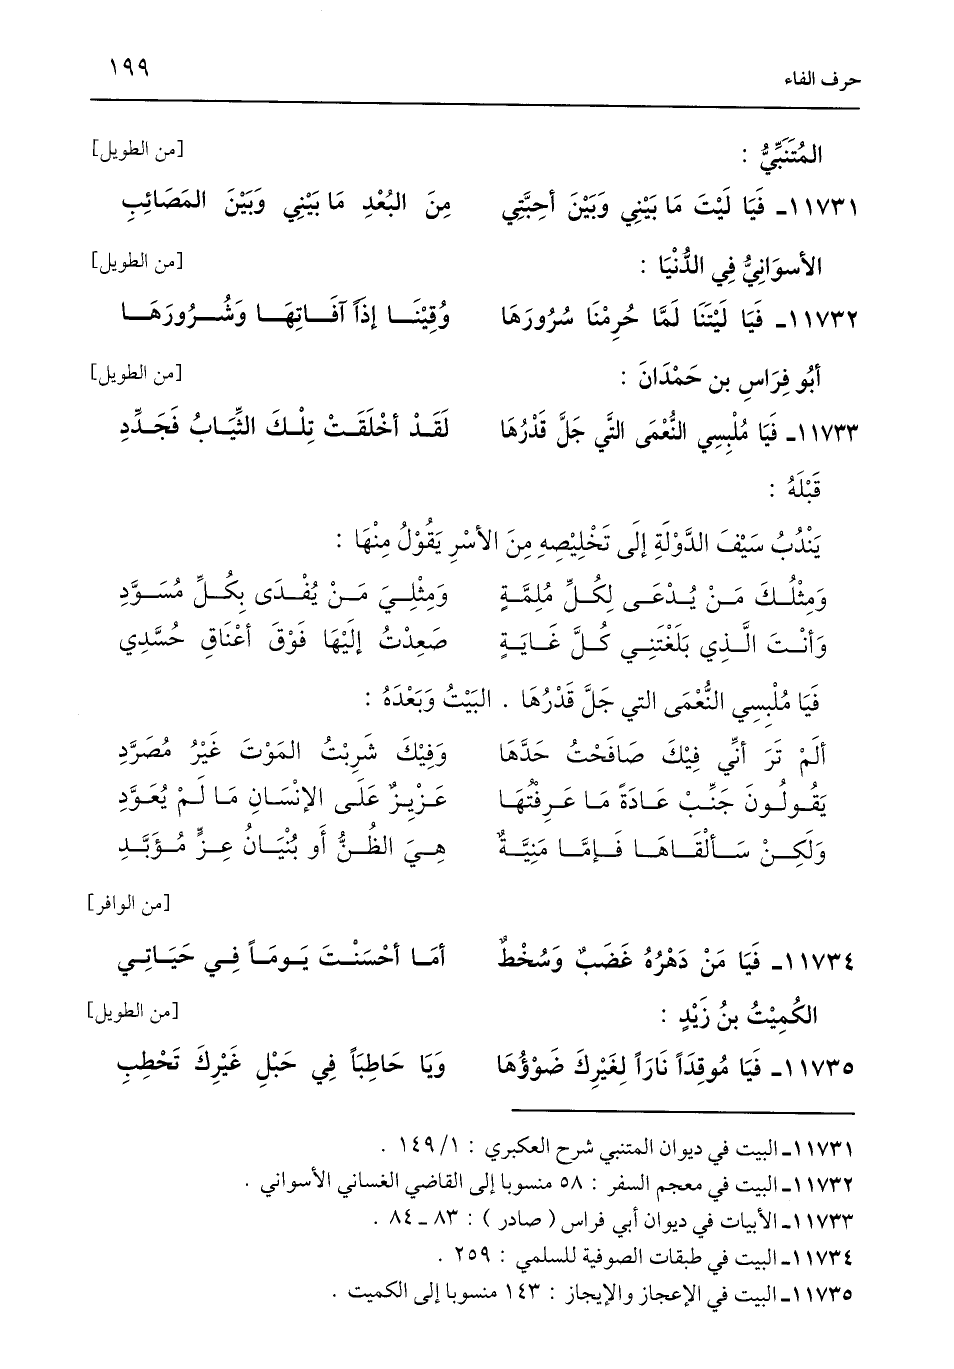 حرف الفاء ١٩٩
المُتَنَبِّيُّ : [من الطويل]
١١٧٣١ـ فَيَا لَيْتَ مَا بَيْنِي وَبَيْنَ أحِبَّتِي مِنَ البُعْدِ مَا بَيْنِي وَبَيْنَ المَصَائِبِ
الأسوَانِيُّ فِي الدُّنْيَا : [من الطويل]
١١٧٣٢ـ فَيَا لَيْتَنَا لَمَّا حُرِمْنَا سُرُورَهَا وُقِيْنَـا إذَاً آفَـاتِهَـا وَشُـرُورَهَـا
أبُو فِرَاسِ بن حَمْدَانَ : [من الطويل]
١١٧٣٣ـ فَيَا مُلْبِسِي النُّعْمَى التَّي جَلَّ قَدْرُهَا لَقَـدْ أخْلَقَـتْ تِلْـكَ الثِّيَـابُ فَجَـدِّدِ
قَبْلَهُ :
يَنْدُبُ سَيْفَ الدَّوْلَةِ إلَى تَخْلِيْصِهِ مِنَ الأسْرِ يَقُوْلُ مِنْهَا :
وَمِثْلُـكَ مَـنْ يُـدْعَـى لِكُـلِّ مُلِمَّـةٍ وَمِثْلِـيَ مَـنْ يُفْـدَى بِكُـلِّ مُسَـوَّدِ
وَأنْـتَ الَّـذِي بَلَغْتَنِـي كُـلَّ غَـايَـةٍ صَعِدْتُ إلَيْهَا فَوْقَ أعْنَاقِ حُسَّدِي
فَيَا مُلْبِسِي النُّعْمَى التي جَلَّ قَدْرُهَا . البَيْتُ وَبَعْدَهُ :
ألَمْ تَرَ أنِّي فِيْكَ صَافَحْتُ حَدَّهَا وَفِيْكَ شَرِبْتُ المَوْتَ غَيْرُ مُصَرَّدِ
يَقُـولُـونَ جَنِّـبْ عَـادَةً مَا عَـرِفْتُهَـا عَـزِيـزٌ عَلَـى الإنْسَـانِ مَا لَـمْ يُعَـوَّدِ
وَلَكِـنْ سَـألْقَـاهَـا فَـإمَّـا مَنِيَّـةٌ هِـيَ الظُّـنُّ أو بُنْيَـانُ عِـزٍّ مُـؤَبَّـدِ
[من الوافر]
١١٧٣٤ـ فَيَا مَنْ دَهْرُهُ غَضَبٌ وَسُخْطٌ أمَـا أحْسَنْـتَ يَـومَـاً فِـي حَيَـاتِـي
الكُمِيْتُ بنُ زَيْدٍ : [من الطويل]
١١٧٣٥ـ فَيَا مُوقِدَاً نَارَاً لِغَيْرِكَ ضَوْؤُهَا وَيَا حَاطِبَاً فِي حَبْلِ غَيْرِكَ تَحْطِبِ
١١٧٣١ـ البيت في ديوان المتنبي شرح العكبري : ١/ ١٤٩ .
١١٧٣٢ـ البيت في معجم السفر : ٥٨ منسوبا إلى القاضي الغساني الأسواني .
١١٧٣٣ـ الأبيات في ديوان أبي فراس ( صادر ) : ٨٣ ـ ٨٤ .
١١٧٣٤ـ البيت في طبقات الصوفية للسلمي : ٢٥٩ .
١١٧٣٥ـ البيت في الإعجاز والإيجاز : ١٤٣ منسوبا إلى الكميت .